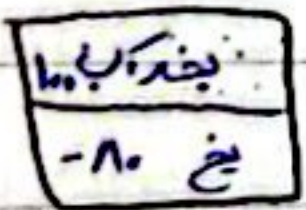 بخار آب ۱۰۰
یخ ۸۰-